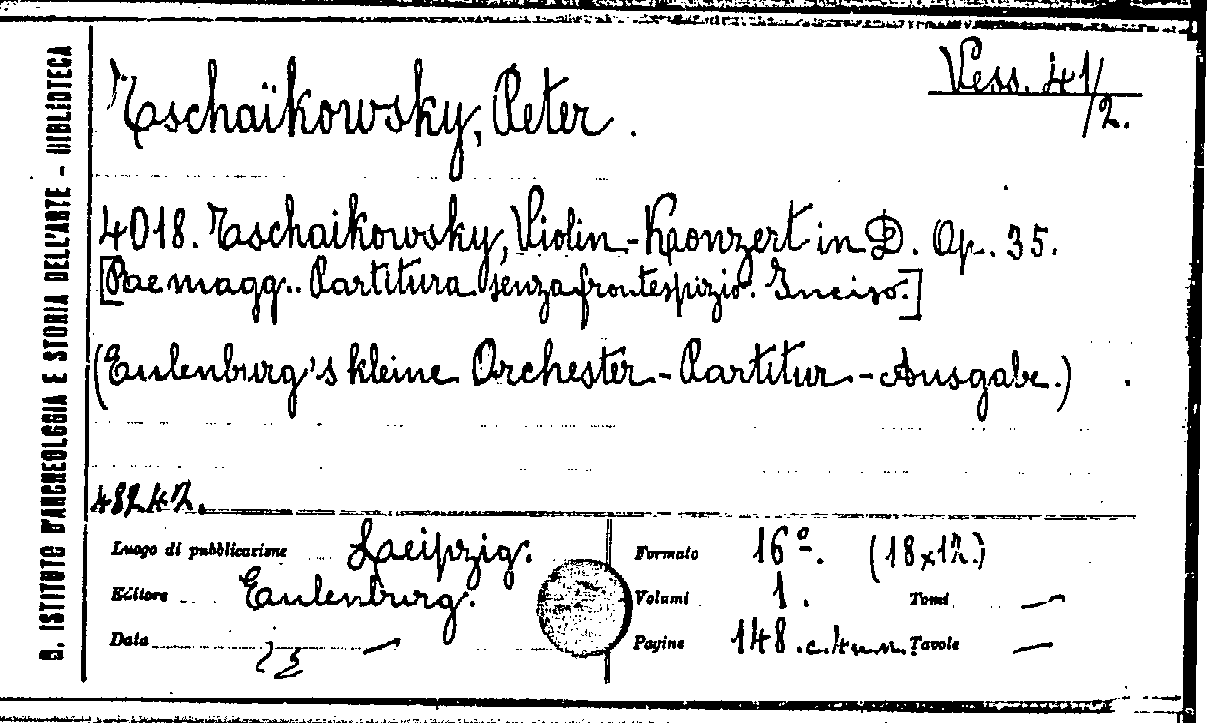 R. ISTITUTO D'ARCHEOLOGIA E STORIA DELL'ARTE - BIBLIOTECA
Vess. 41/2.
Tschaïkowsky, Peter.
4018. Tschaikowsky, Violin-Konzert in D. Op. 35.
[Re magg. Partitura senza frontespizio. Inciso.]
(Eulenburg's kleine Orchester-Partitur-Ausgabe.)
48242.
Luogo di pubblicazione Leipzig.
Editore Eulenburg.
Data —
Formato 16º. (18x12.)
Volumi 1. Tomi —
Pagine 148. Tavole —